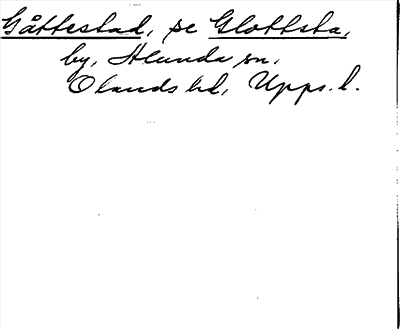 Gåttestad, se Glottsta,
by, Alunda sn,
Olands hd, Upps. l.